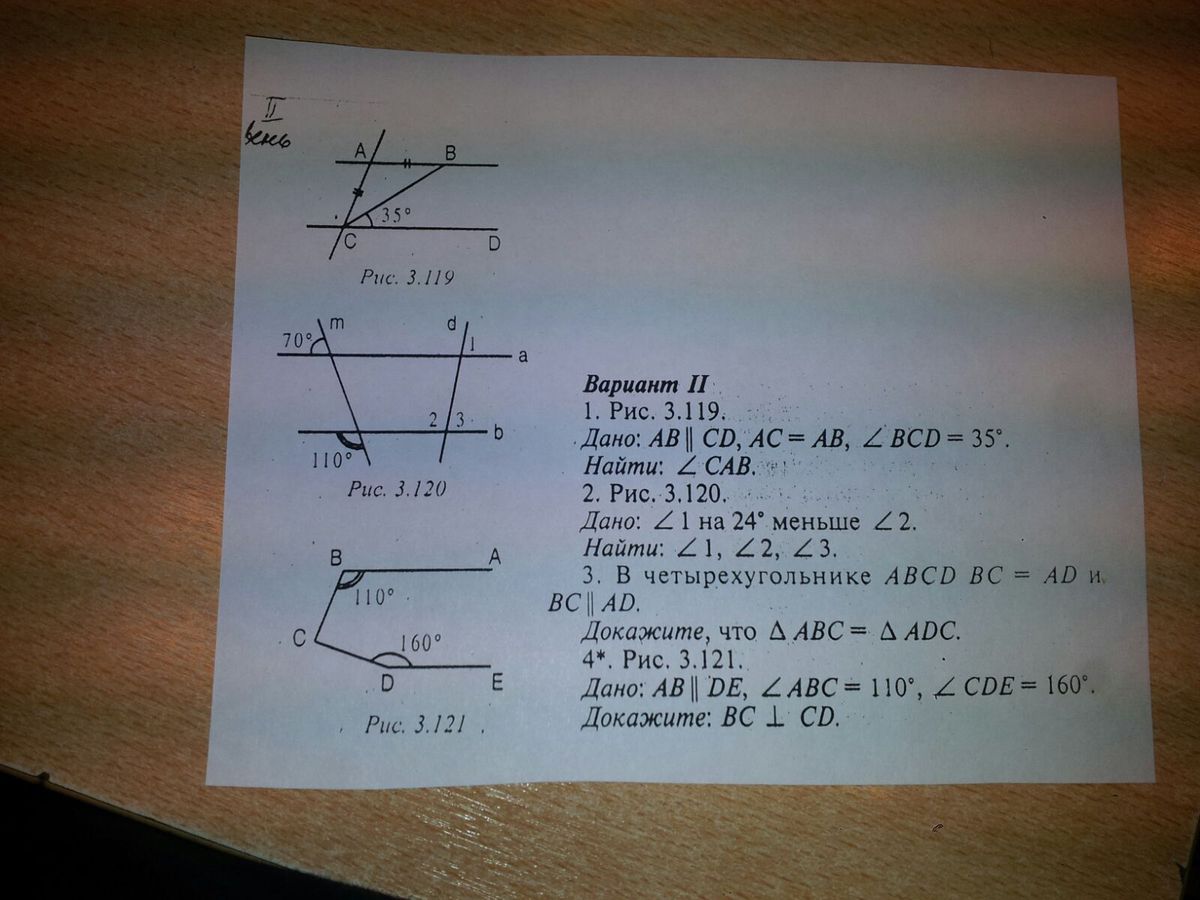 II
A B
35°
C D
Рис. 3.119
m d
70° 1 a
2 3 b
110°
Рис. 3.120
B A
110°
C 160°
D E
Рис. 3.121
Вариант II
1. Рис. 3.119.
Дано: AB || CD, AC = AB, ∠ BCD = 35°.
Найти: ∠ CAB.
2. Рис. 3.120.
Дано: ∠ 1 на 24° меньше ∠ 2.
Найти: ∠ 1, ∠ 2, ∠ 3.
3. В четырехугольнике ABCD BC = AD и
BC || AD.
Докажите, что Δ ABC = Δ ADC.
4*. Рис. 3.121.
Дано: AB || DE, ∠ ABC = 110°, ∠ CDE = 160°.
Докажите: BC ⊥ CD.